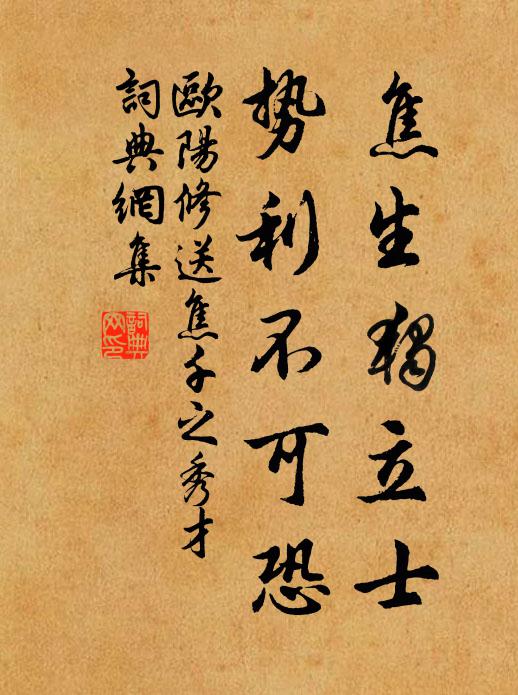 焦生獨立士
势利不可恐
歐陽修送焦千之秀才
詞典網集
詞典
网印